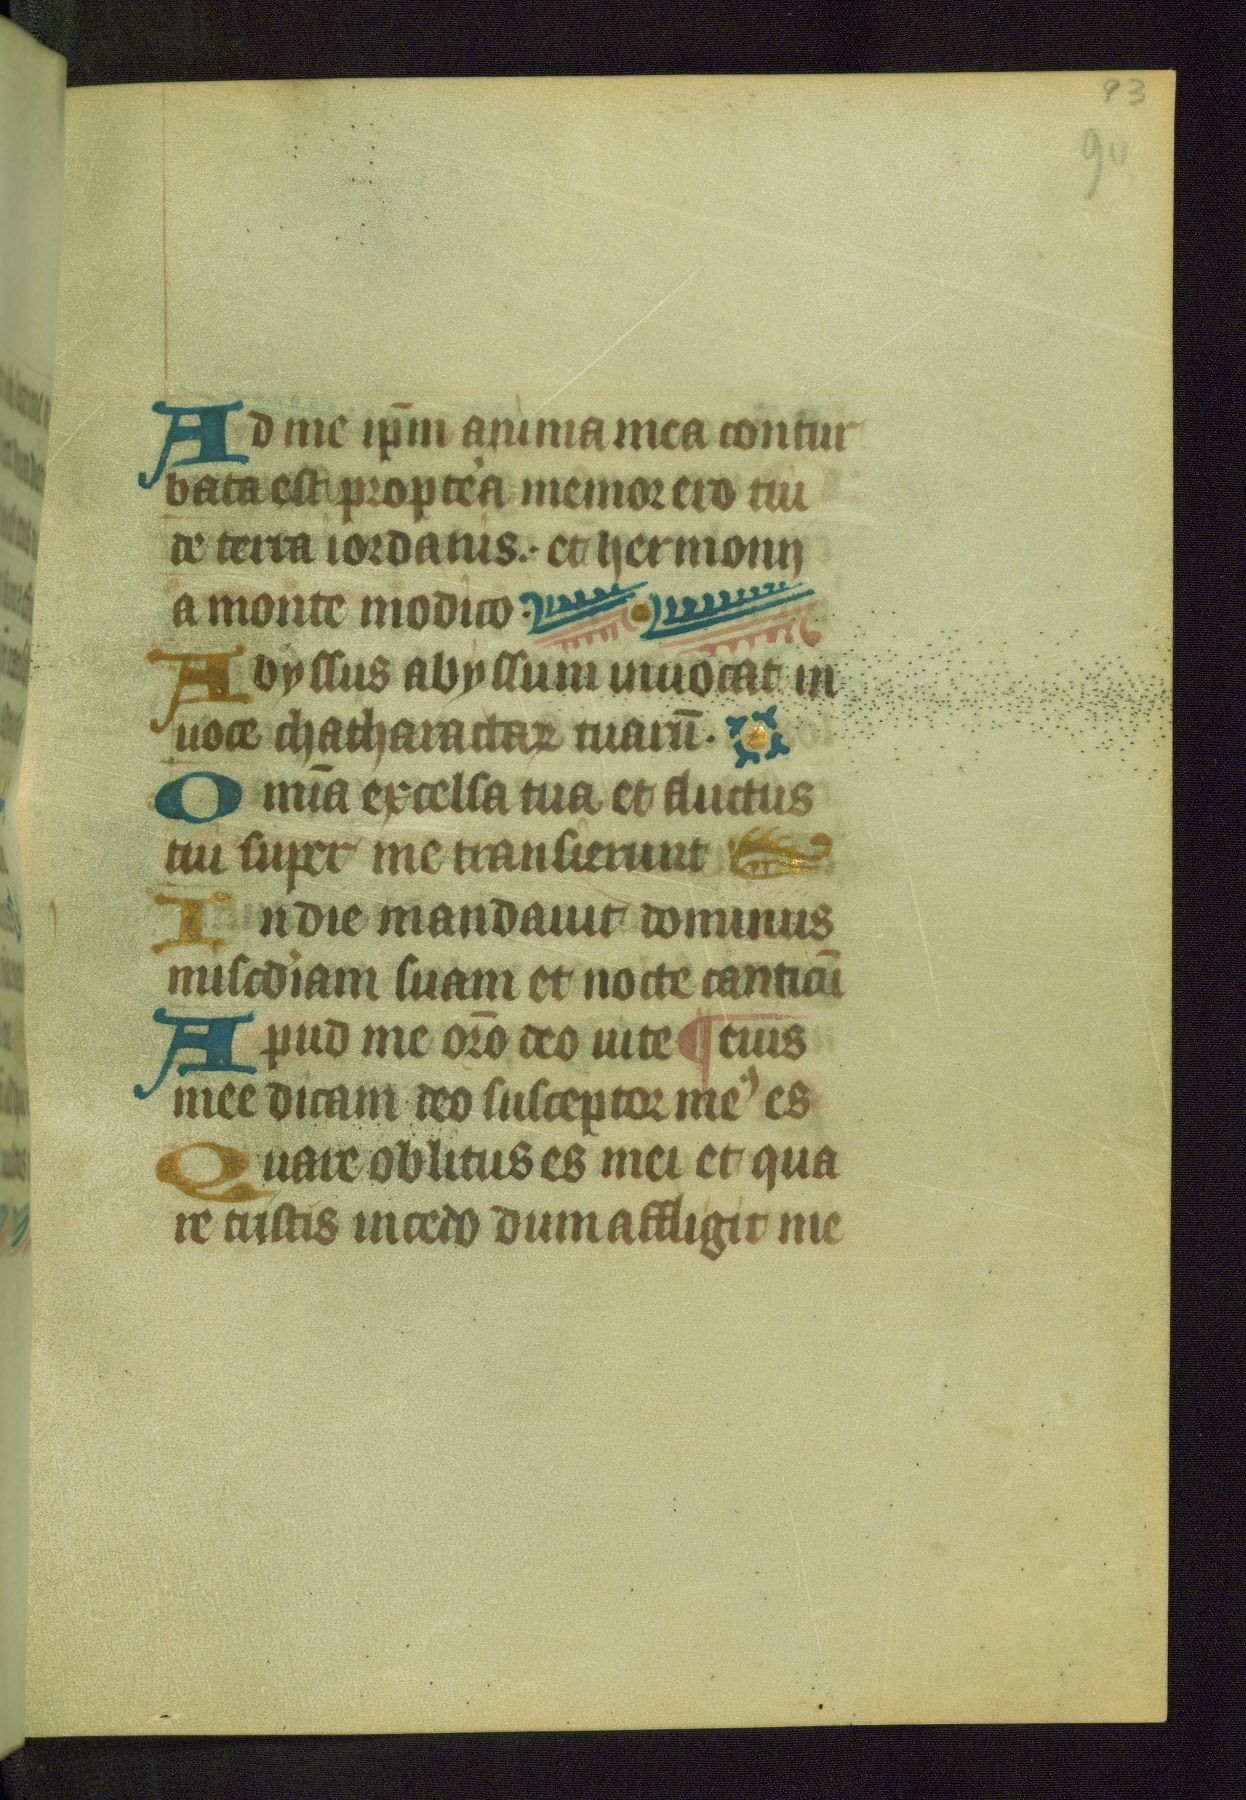 93
90
Ad me ip̄m anima mea contur
bata est propt'ea memor ero tui
de terra iordanis. et hermonij
a monte modico.
Abyssus abyssum inuocat in
uoce chatharactaꝝ tuarū.
Om̄ia excelsa tua et fluctus
tui super me transierunt
In die mandauit dominus
misc'diam suam et nocte canticū
Apud me or̄o deo uite ¶ eius
mee dicam deo susceptor me' es
Quare oblitus es mei et qua
re tristis incedo dum affligit me